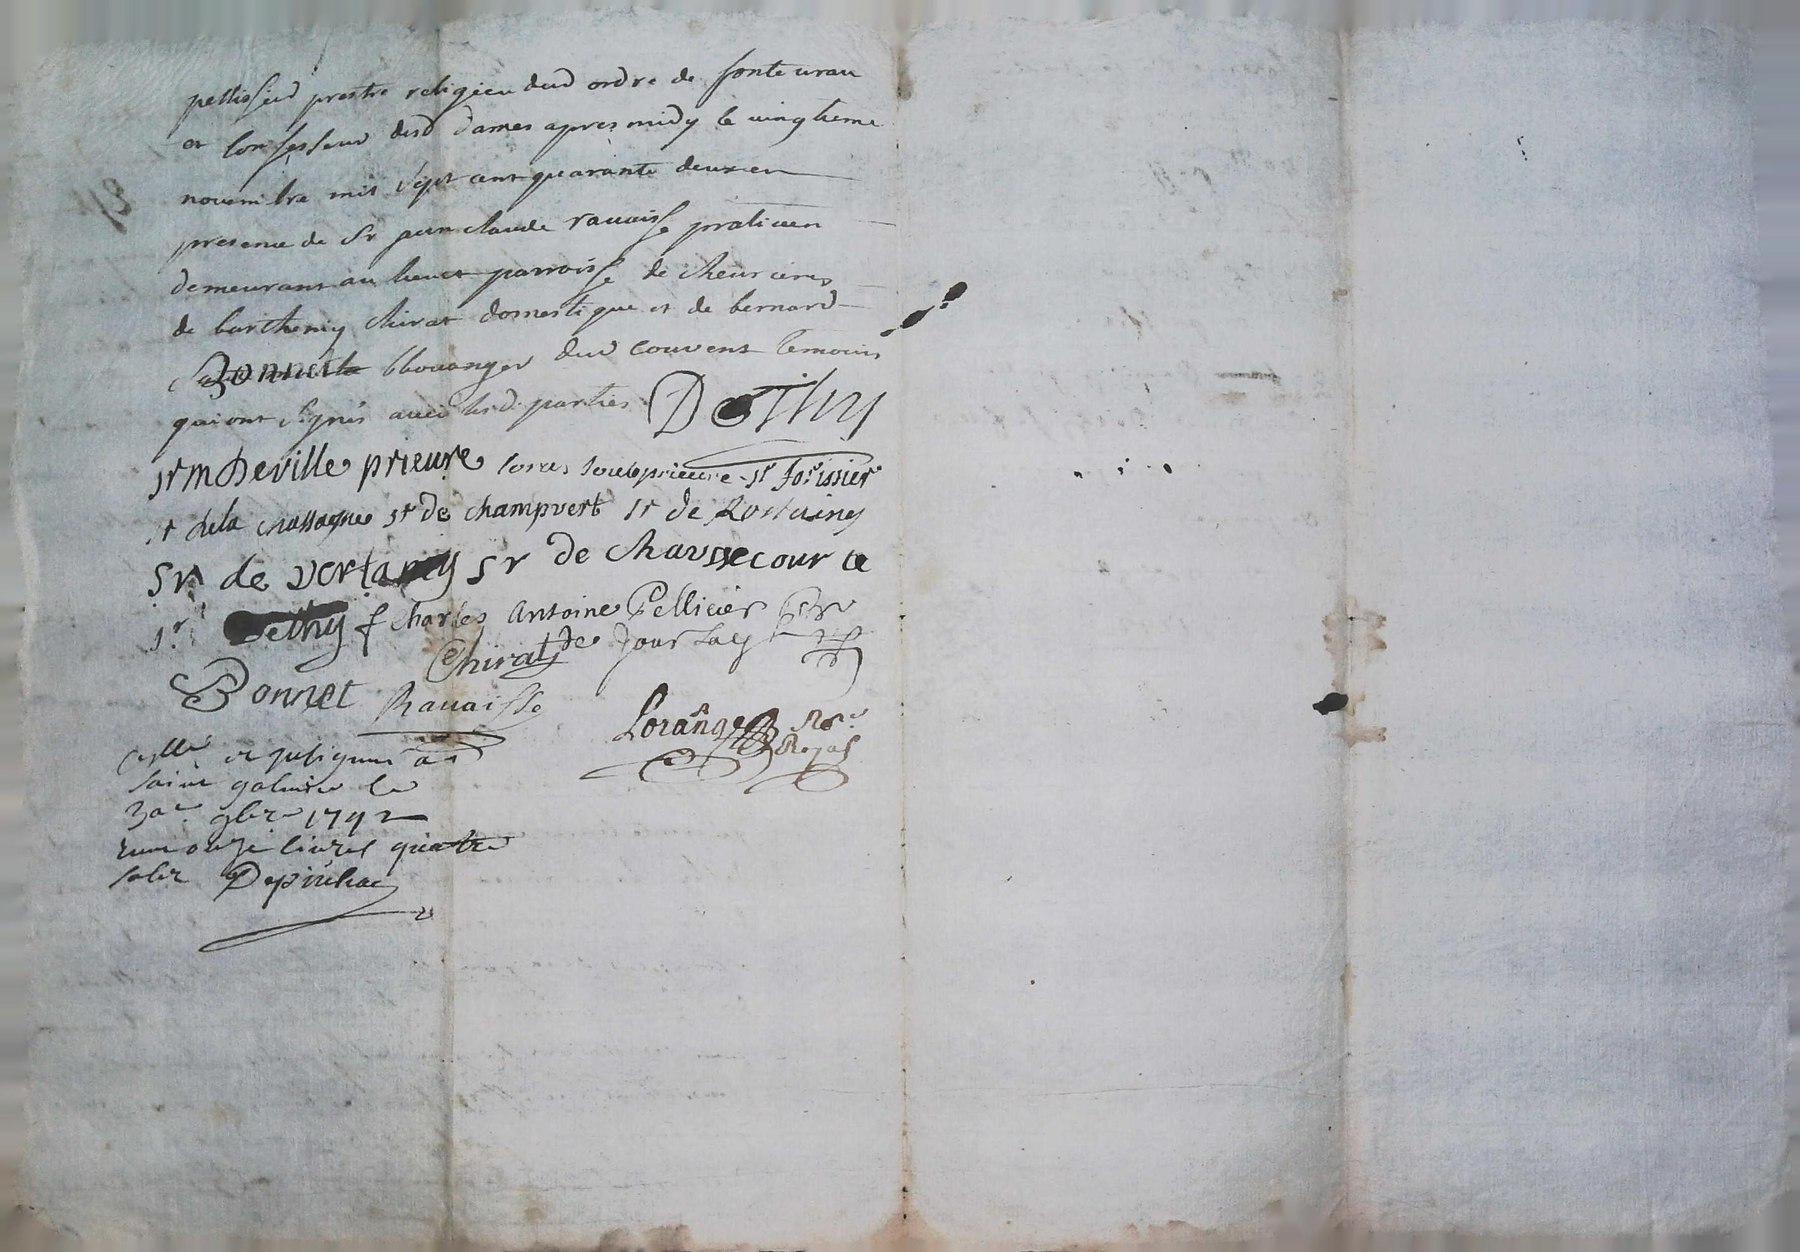 pellissier prestre religieu dud ordre de fonteurau
et Confesseur desd dames apres midy le uingtieme
nouembre mil sept cent quarante deux en
presence de Sr jean claude rauaisse praticien
demeurant au lieu et parroisse de cheurieres
de barthemy chirat domestique et de bernard
Bonnet bouanger dud couvent temoins
qui ont signés auec lesd. parties DeThy
sr m Deville prieure souspprieure sr forissier
sr dela chassagne sr de champvert sr de Rostaing
Sr de vertamy Sr de chaussecourte
sr Dethy f Charles Antoine Pellicier
Chirat de Jourlacy
Bonnet Rauaisse
Lorange Nre Royal
Collé et jnsigné a
saint galmier le
30e 9bre 1742
Recu onze livres quatre
sols Depinhac